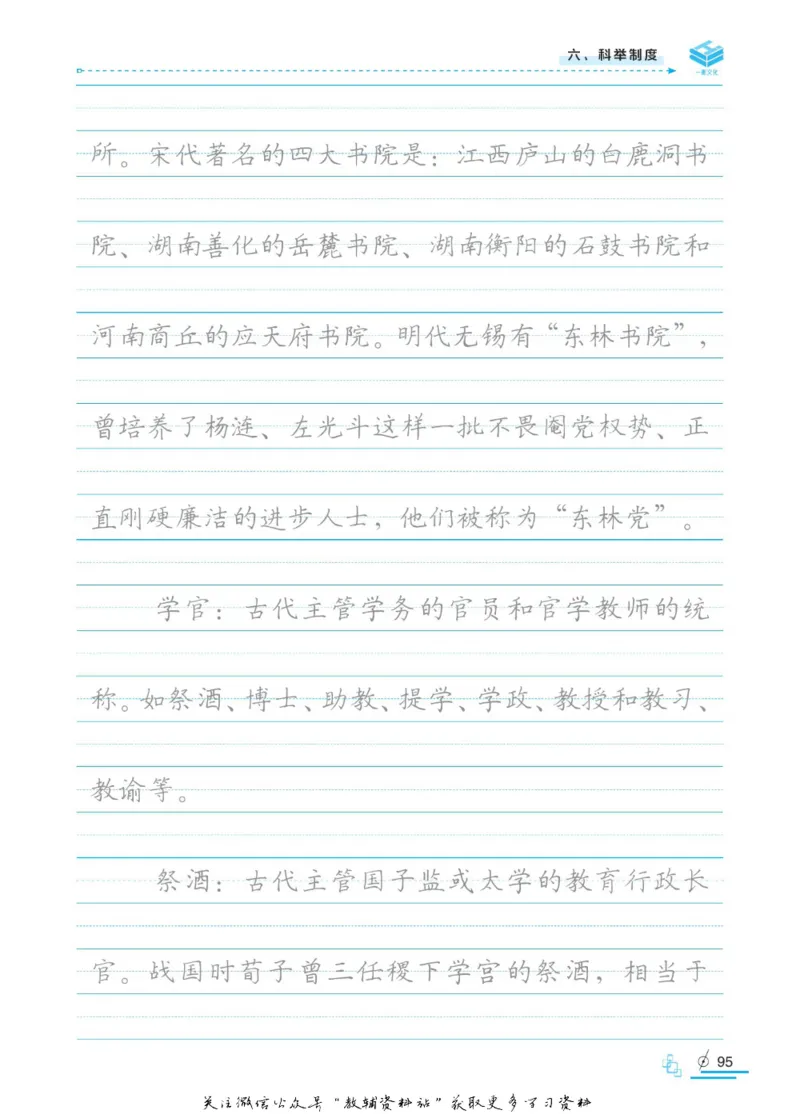 六、科举制度
一本文化
所。宋代著名的四大书院是：江西庐山的白鹿洞书
院、湖南善化的岳麓书院、湖南衡阳的石鼓书院和
河南商丘的应天府书院。明代无锡有“东林书院”，
曾培养了杨涟、左光斗这样一批不畏阉党权势、正
直刚硬廉洁的进步人士，他们被称为“东林党”。
学官：古代主管学务的官员和官学教师的统
称。如祭酒、博士、助教、提学、学政、教授和教习、
教谕等。
祭酒：古代主管国子监或太学的教育行政长
官。战国时荀子曾三任稷下学宫的祭酒，相当于
95
关注微信公众号“教辅资料站”获取更多学习资料